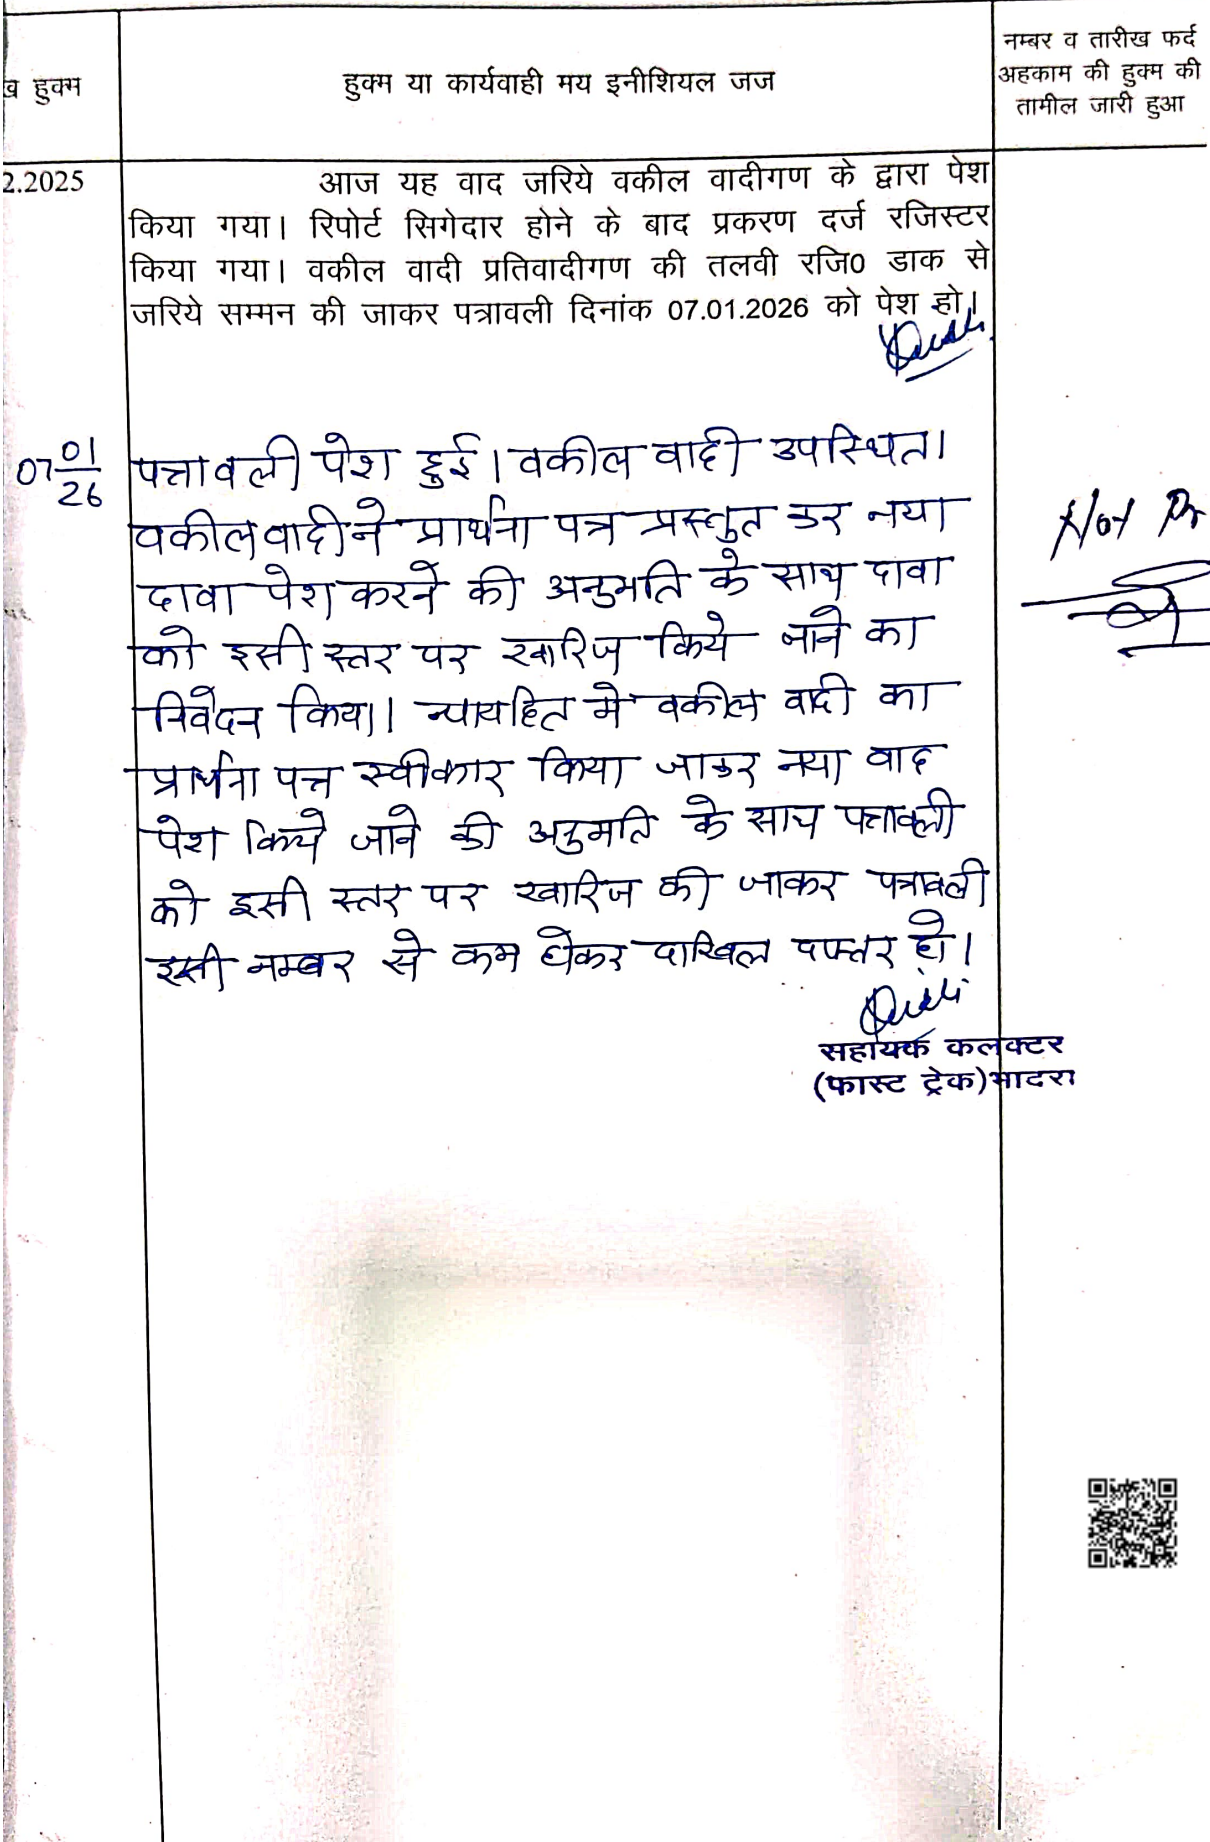 हुक्म
हुक्म या कार्यवाही मय इनीशियल जज
नम्बर व तारीख फर्द
अहकाम की हुक्म की
तामील जारी हुआ
2.2025
आज यह वाद जरिये वकील वादीगण के द्वारा पेश
किया गया। रिपोर्ट सिगेदार होने के बाद प्रकरण दर्ज रजिस्टर
किया गया। वकील वादी प्रतिवादीगण की तलवी रजि0 डाक से
जरिये सम्मन की जाकर पत्रावली दिनांक 07.01.2026 को पेश हो।
07 01/26
पत्रावली पेश हुई। वकील वादी उपस्थित।
वकील वादी ने प्रार्थना पत्र प्रस्तुत कर नया
दावा पेश करने की अनुमति के साथ दावा
को इसी स्तर पर खारिज किये जाने का
निवेदन किया। न्यायहित मे वकील वादी का
प्रार्थना पत्र स्वीकार किया जाकर नया वाद
पेश किये जाने की अनुमति के साथ पत्रावली
को इसी स्तर पर खारिज की जाकर पत्रावली
इसी नम्बर से कम होकर दाखिल दफ्तर हो।
Not
सहायक कलक्टर
(फास्ट ट्रेक) भादरा